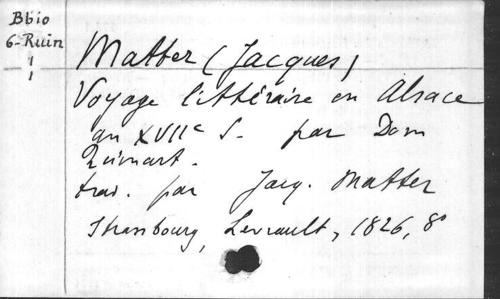 Bbio
6-Ruin
Matter (Jacques)
Voyage littéraire en Alsace
au XVIIe S. par Dom
Ruinart.
trad. par Jacq. Matter
Strasbourg, Levrault, 1826, 8º